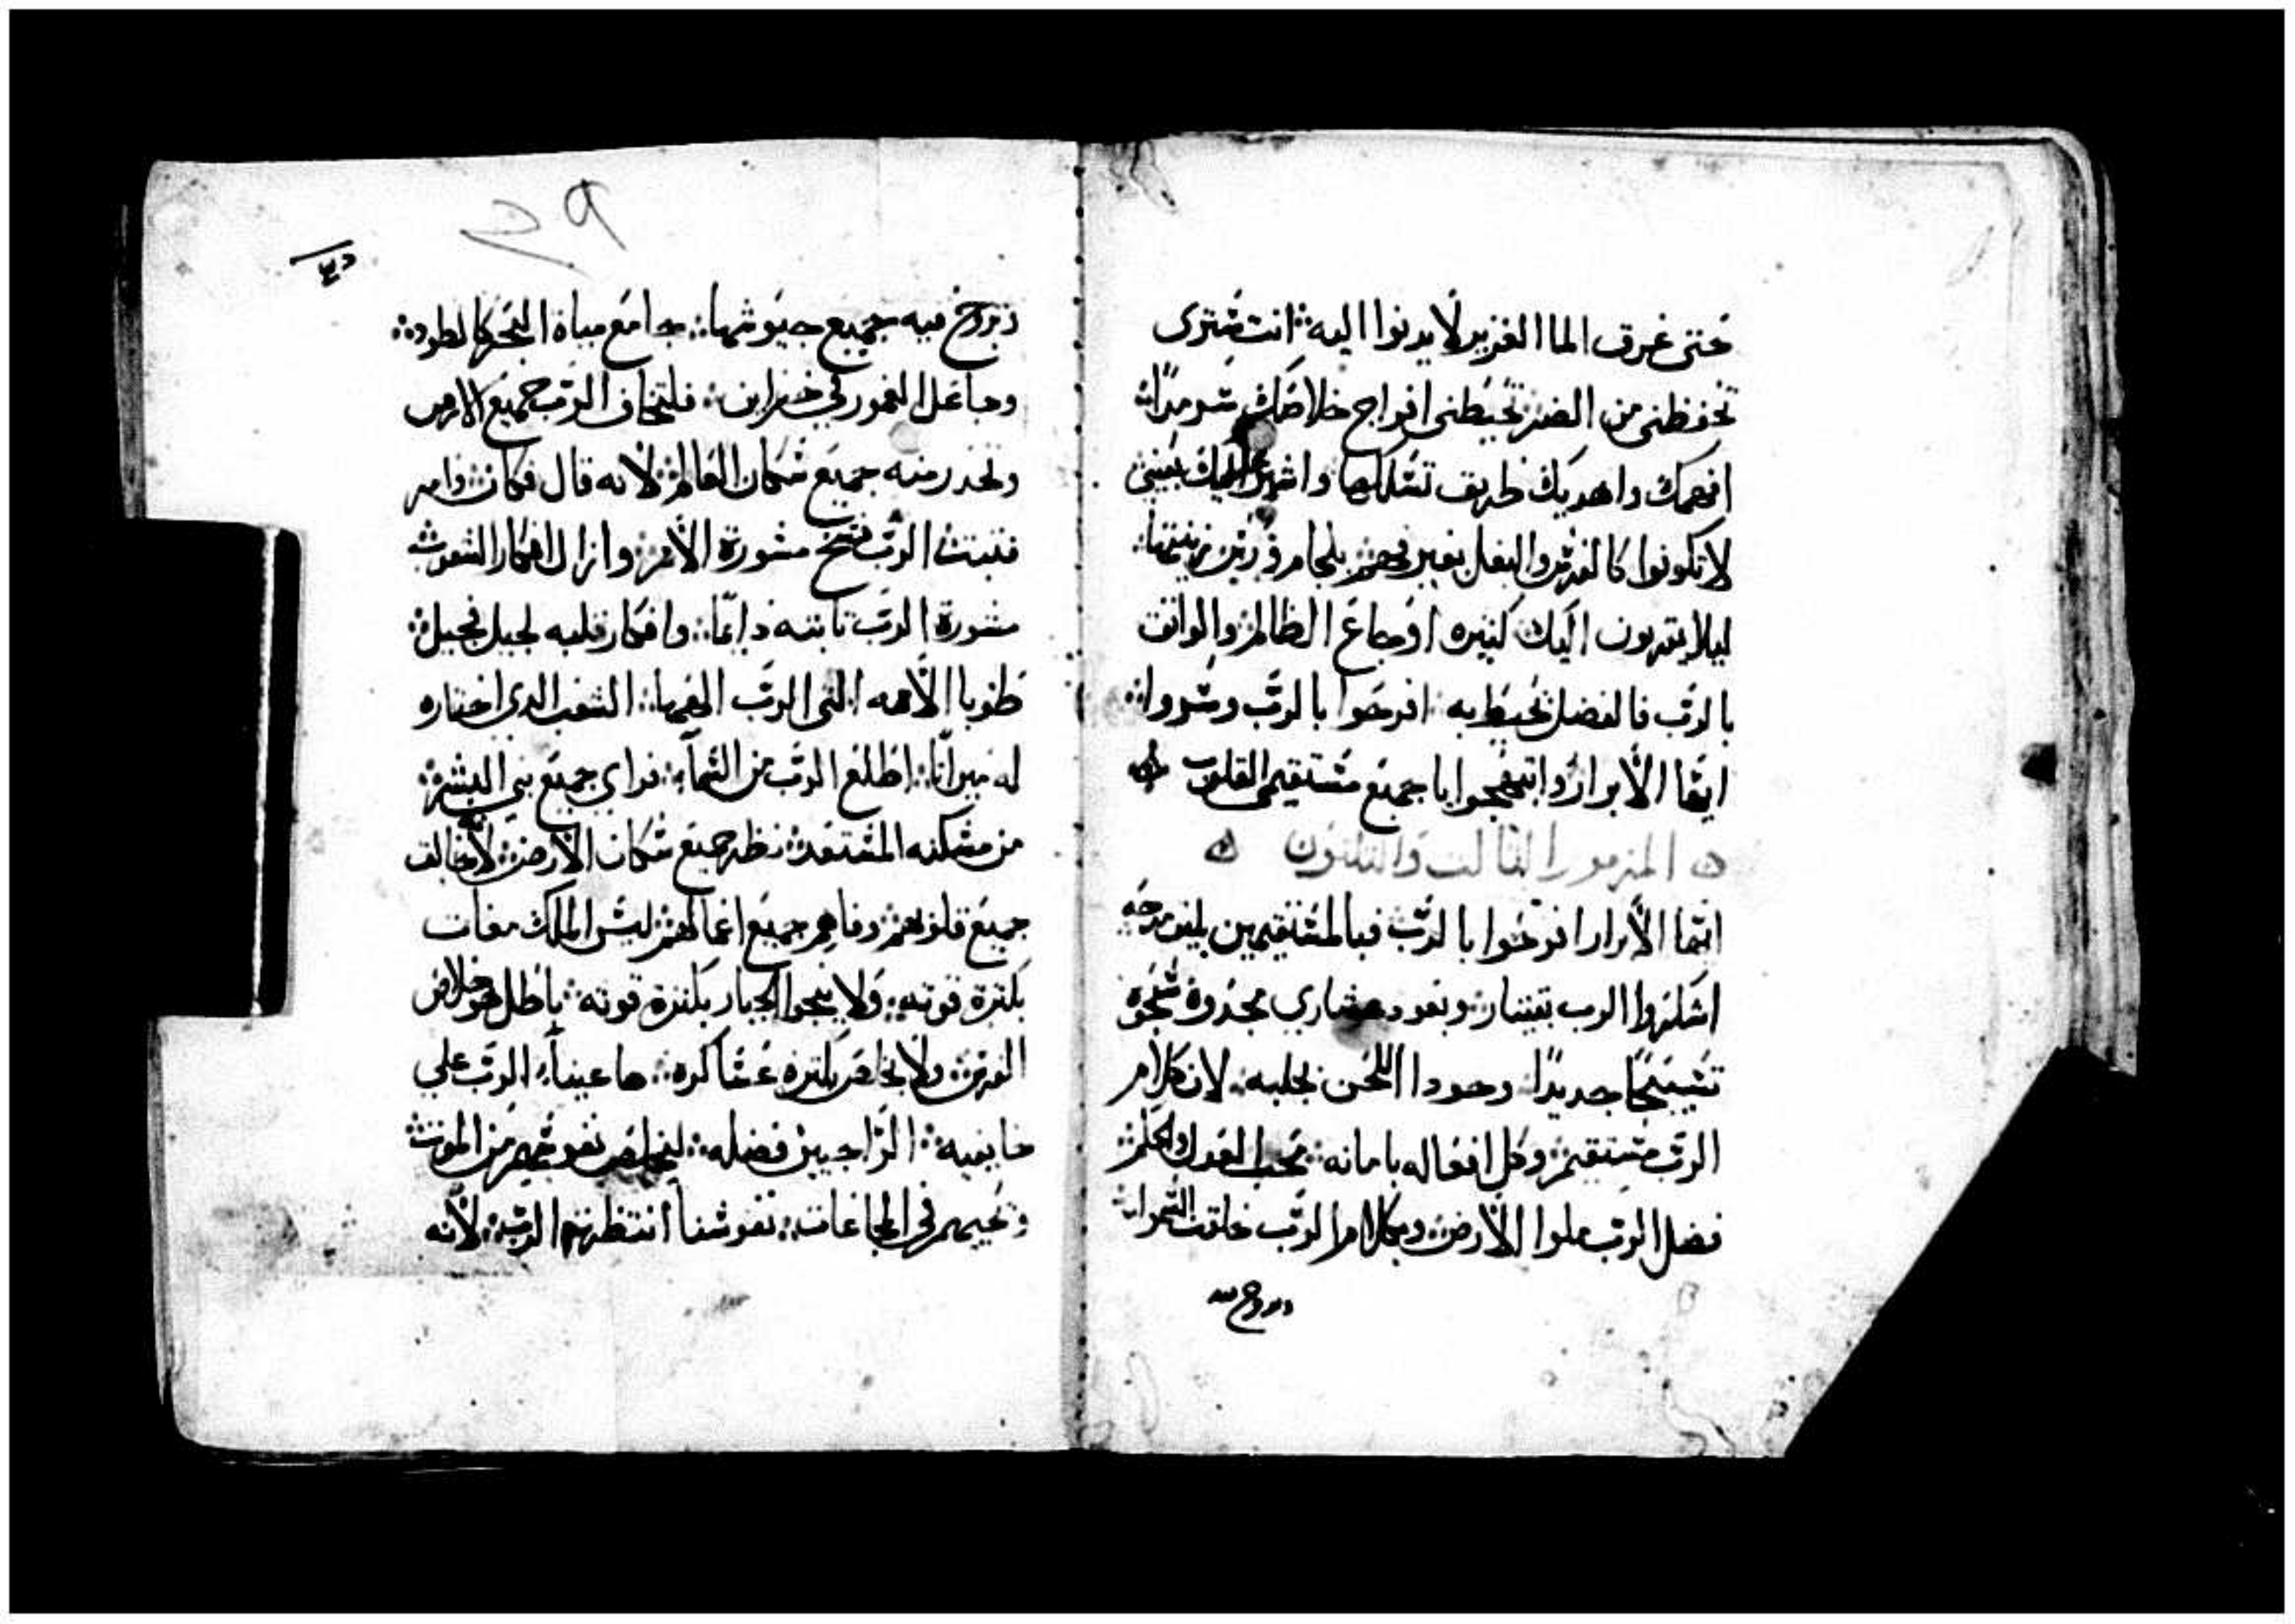 حتى غرق الما الغزير لا يدنوا اليه ۞ انت سترى
تحفظنى من الضر تحيطنى افراج خلاصك سرمدًا
افهمك واهديك طريق تسلكها واشير عليك بعينى
لا تكونوا كالفرس والبغل بغير فهم بلجام ورسن زينتها
ليلا يقتربون اليك كثيره اوجاع الظالم والواثق
بالرب فالفضل تحيط به افرحوا بالرب وسروا
ايها الأبرار وابتهجوا يا جميع مستقيمى القلوب
المزمور الثالث والثلثون
ايها الأبرار افرحوا بالرب فبالمستقيمين يليق مدحه
اشكروا الرب بقيتار وبعود عشارى مجدوه سبحوه
تسبيحًا جديدًا وجودا اللحن بجلبه لان كلام
الرب مستقيم وكل افعاله بامانه يحب العدل والحكم
فضل الرب ملوا الأرض وبكلام الرب خلقت السموات
وبروح
٩
وبروح فيه جميع جيوشها جامع مياه البحر كالطود
وجاعل الغمور في خزاين فليخاف الرب جميع الارض
ولتحذر منه جميع سكان العالم لأنه قال فكان وامر
فثبتت الرب فسخ مشورة الأمم وازال افكار الشعوب
مشورة الرب ثابته دايمًا وافكار قلبه لجيل فجيل
طوبا الأمه التى الرب الهها الشعب الدي اختاره
له ميراثا اطلع الرب من السمآء فراي جميع بني البشر
من مسكنه المستعد نظر جميع سكان الأرض لأنه خالق
جميع قلوبهم وفاهم جميع اعمالهم ليس الملك مغاث
بكثرة قوته ولا ينجوا الجبار بكثرة قوته باطل هو خلاص
الفرس ولا يخلص بكثره عساكره ها عيناء الرب علي
خايفيه الراجيين فضله ليخلص نفوسهم من الموت
وتحييهم في المجاعات نفوسنا انتظرت الرب لأنه